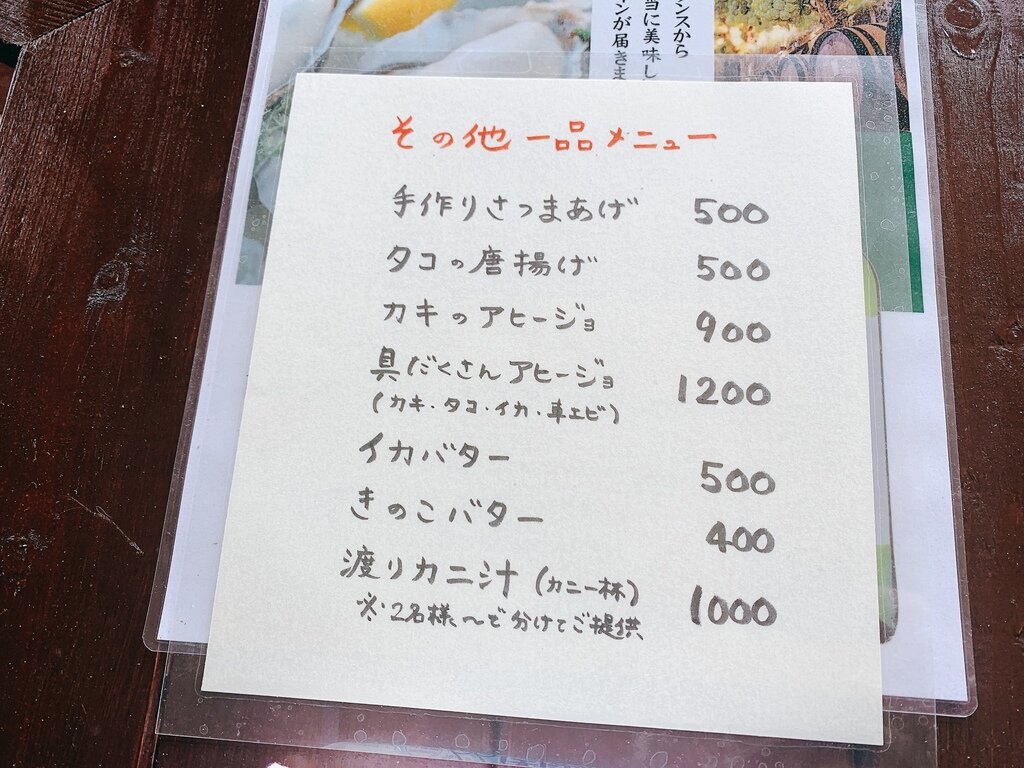 ンスから
当に美味し
ンが届きま
その他一品メニュー
手作りさつまあげ 500
タコの唐揚げ 500
カキのアヒージョ 900
具だくさんアヒージョ 1200
(カキ・タコ・イカ・車エビ)
イカバター 500
きのこバター 400
渡りカニ汁(カニ一杯) 1000
※2名様〜で分けてご提供